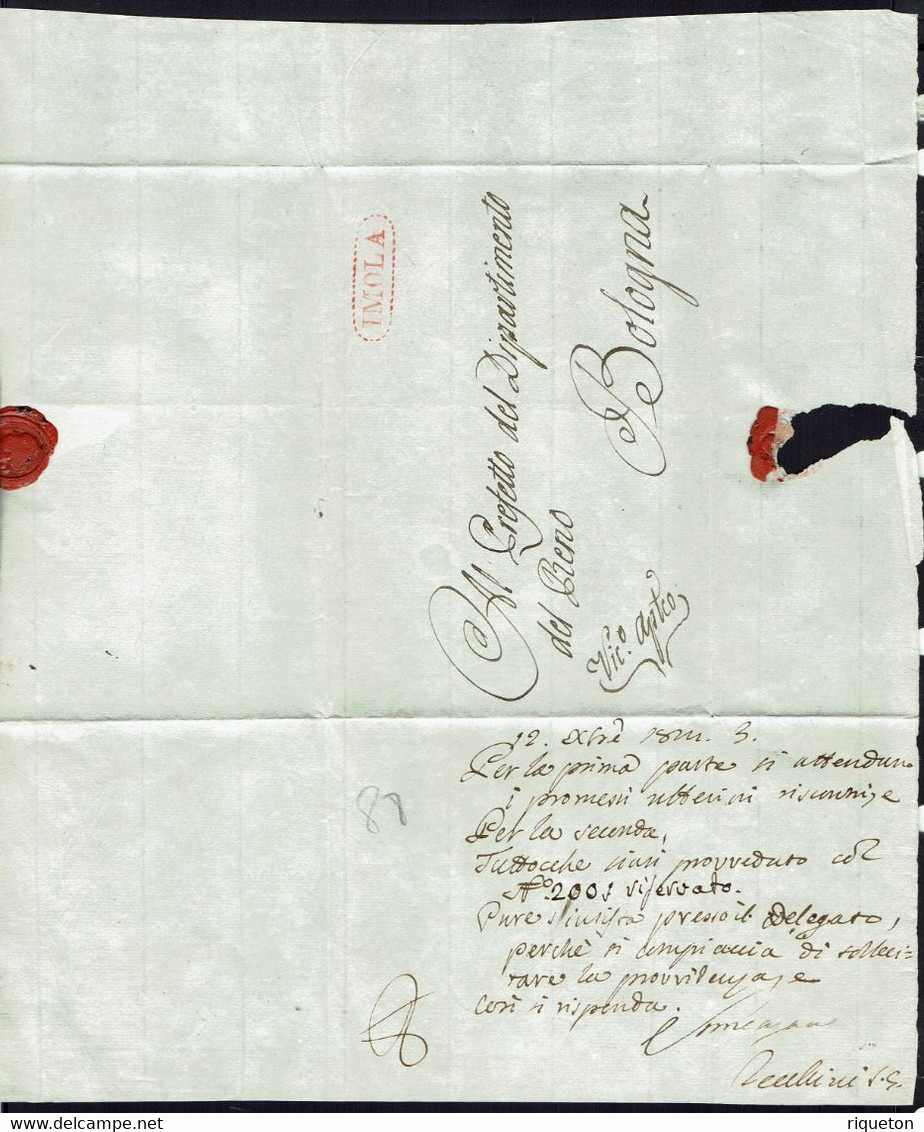 IMOLA
Al Prefetto del Dipartimento
del Reno
Bologna
Vic.o
12. Xbrè 1811. 3.
Per la prima parte si attendan
i promessi ulteriori riscontri, e
Per la seconda,
Tuttocche siasi provveduto col
N.o 2001 riservato.
Pure s'insista presso il Delegato,
perchè si compiaccia di solleci=
tare la provvidenza, e
Così si risponda.
Zecchini S. G.
87
www.delcampe.net
riqueton